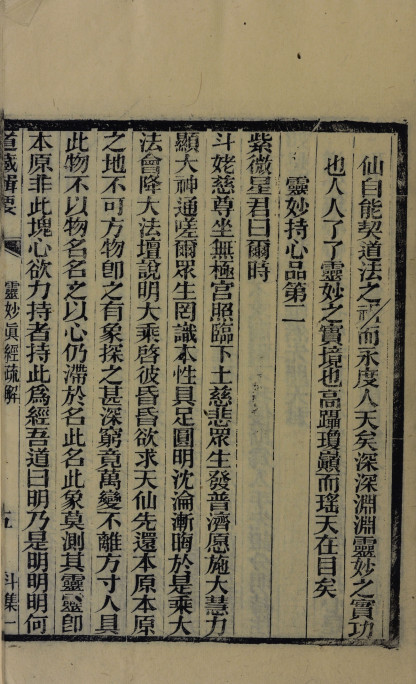 仙自能契道法之祕而永度人天矣深深淵淵靈妙之實功
也人人了了靈妙之實境也高躡瓊巔而瑤天在目矣
靈妙持心品第二
紫微星君曰爾時
斗姥慈尊坐無極宮照臨下土慈悲眾生發普濟愿施大慧力
顯大神通嗟爾眾生罔識本性具足圓明沈淪漸晦於是乘大
法會降大法壇說明大乘啓彼昏昏欲求天仙先還本原本原
之地不可方物卽之有象探之甚深窮竟萬變不離方寸人具
此物不以物名名之以心仍滯於名此名此象莫測其靈靈卽
本原非此塊心欲力持者持此為經吾道曰明乃是明明明何
道藏輯要
靈妙眞經疏解
十五
斗集一